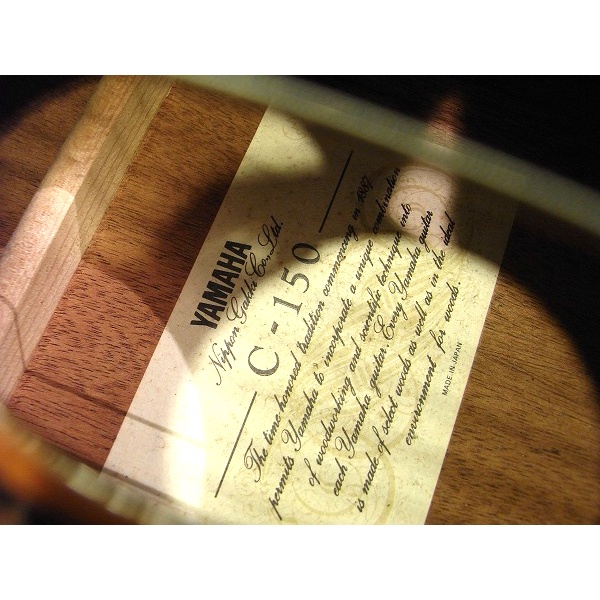 YAMAHA
Nippon Gakki Co., Ltd.
C-150
The time honored tradition commencing in 1887,
permits Yamaha to incorporate a unique combination
of woodworking and scientific technique into
each Yamaha guitar. Every Yamaha guitar
is made of select woods as well as in the ideal
environment for woods.
MADE IN JAPAN